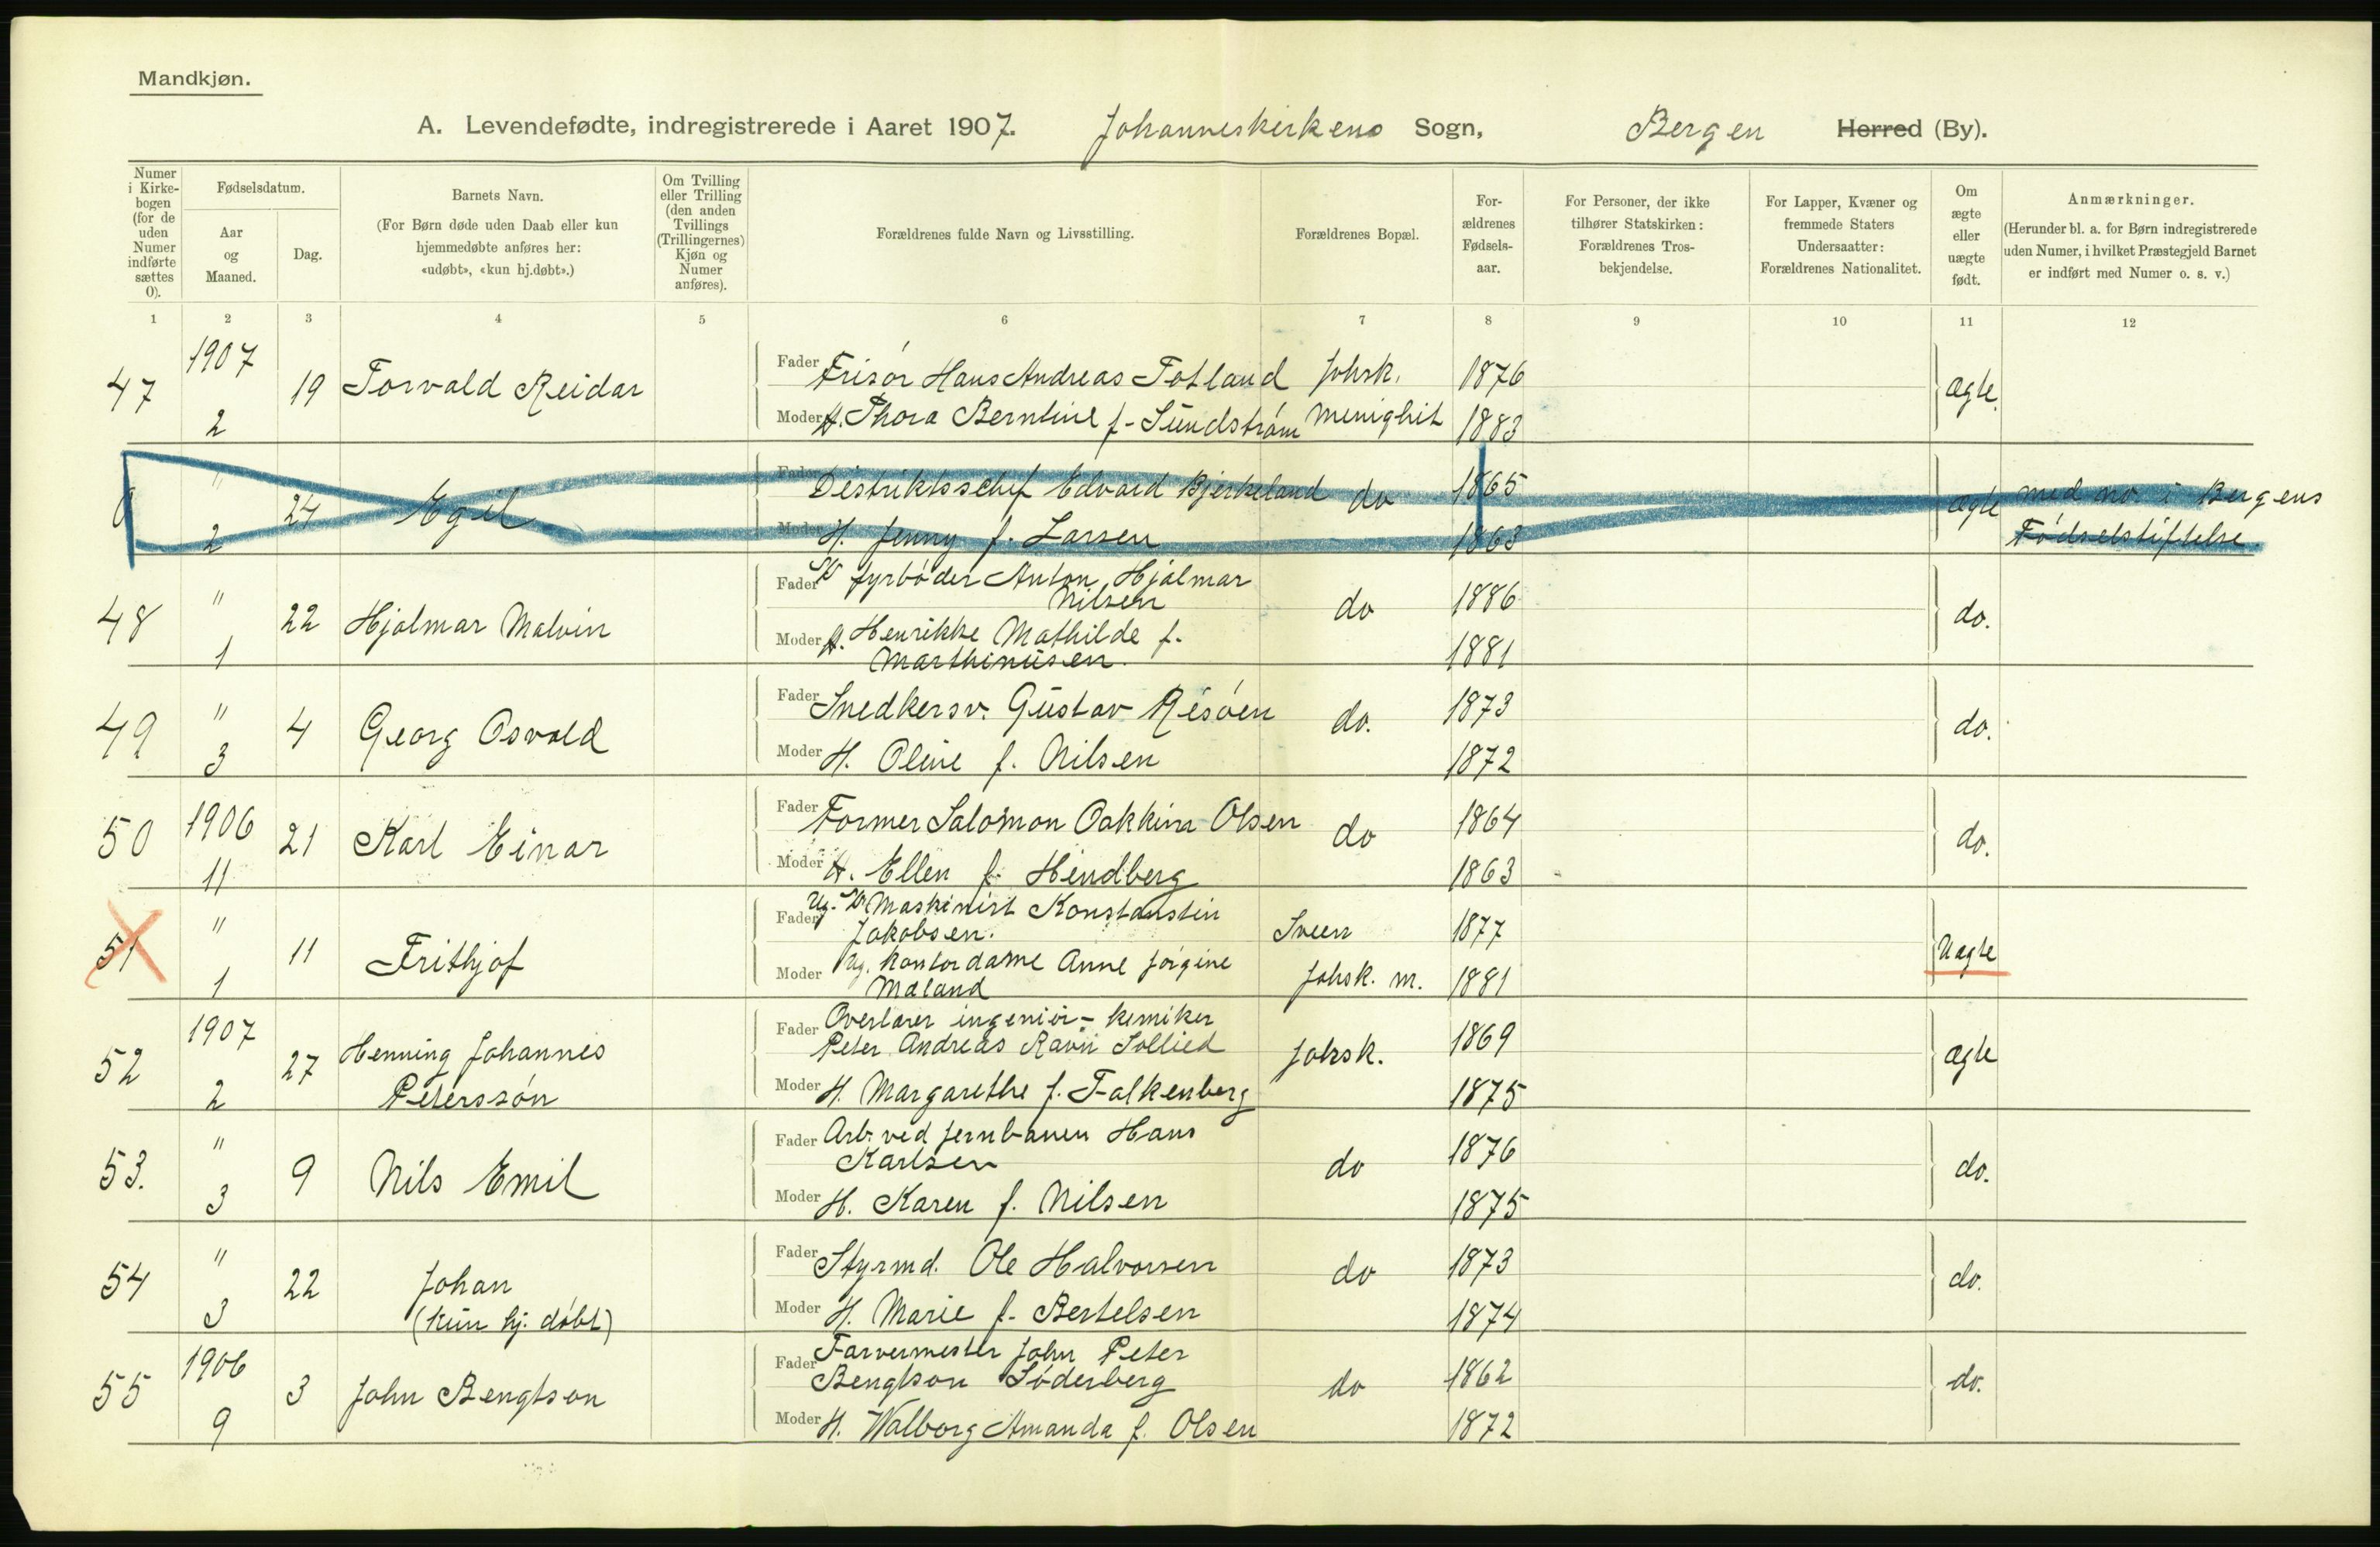 Mandkjøn.
A. Levendefødte, indregistrerede i Aaret 1907. Johanneskirkens Sogn, Bergen Herred (By).
Numer i Kirkebogen (for de uden Numer indførte sættes 0).
Fødselsdatum.
Aar og Maaned.
Dag.
Barnets Navn.
(For Børn døde uden Daab eller kun hjemmedøbte anføres her: «udøbt», «kun hj.døbt».)
Om Tvilling eller Trilling (den anden Tvillings (Trillingernes) Kjøn og Numer anføres).
Forældrenes fulde Navn og Livsstilling.
Forældrenes Bopæl.
Forældrenes Fødselsaar.
For Personer, der ikke tilhører Statskirken: Forældrenes Trosbekjendelse.
For Lapper, Kvæner og fremmede Staters Undersaatter: Forældrenes Nationalitet.
Om ægte eller uægte født.
Anmærkninger.
(Herunder bl. a. for Børn indregistrerede uden Numer, i hvilket Præstegjeld Barnet er indført med Numer o. s. v.)
1 2 3 4 5 6 7 8 9 10 11 12
47 1907 2 19 Torvald Reidar
Fader Frisør Hans Andreas Totland Johsk. 1876 ægte.
Moder H. Thora Berntine f. Sundstrøm menighet 1883
0 " 2 24 Egil
Fader Distriktsschef Edvard Bjerkeland do 1865 ægte med no i Bergens
Moder H. Jenny f. Larsen 1863 Fødselstiftelse.
48 " 1 22 Hjalmar Malvin
Fader fyrbøder Anton Hjalmar
Nilsen do 1886 do.
Moder H. Henrikke Mathilde f.
Marthinusen. 1881
49 " 3 4 Georg Osvald
Fader Snedkersv. Gustav Risøen do. 1873 do.
Moder H. Oline f. Nilsen 1872
50 1906 11 21 Karl Einar
Fader Former Salomon Oakkim Olsen do 1864 do.
Moder H. Ellen f. Hindberg 1863
51 " 1 11 Frithjof
Fader Ug. Maskinist Konstanstin
Jakobsen. Sveen 1877 Uægte
Moder Ug. Kontordame Anne Jørgine
Mæland Johsk. m. 1881
52 1907 2 27 Henning Johannes
Peterssøn
Fader Overlærer ingeniør - kemiker
Peter Andreas Ravn Sollied Johsk. 1869 ægte
Moder H. Margarethe f. Falkenberg 1875
53. " 3 9 Nils Emil
Fader Arb. ved jernbanen Hans
Karlsen do 1876 do.
Moder H. Karen f. Nilsen 1875
54 " 3 22 Johan
(kun hj. døbt)
Fader Styrmd. Ole Halvorsen do 1873 do.
Moder H. Marie f. Bertelsen 1874
55 1906 9 3 John Bengtson
Fader Farvermester John Peter
Bengtson Søderberg do 1862 do.
Moder H. Walborg Amanda f. Olsen 1872